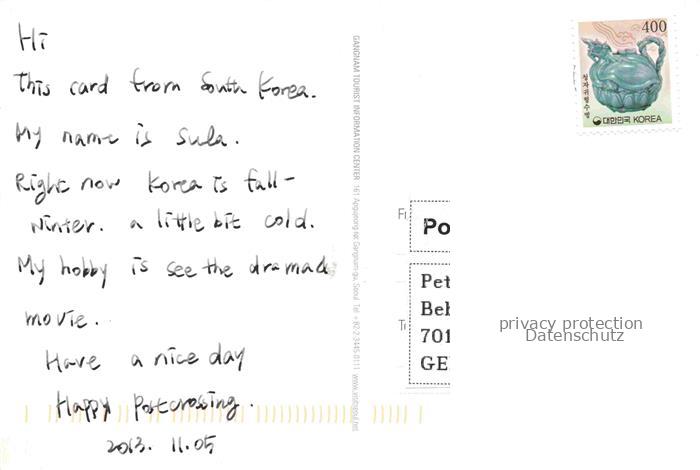 Hi
This card from South Korea.
My name is Sula.
Right now Korea is fall-
Winter. a little bit cold.
My hobby is see the drama&
movie.
Have a nice day
Happy Postcrossing.
2013. 11.05
GANGNAM TOURIST INFORMATION CENTER 161 Apgujeong-ro, Gangnam-gu, Seoul Tel +82-2-3445-0111 www.visitseoul.net
400
청자귀형수병
대한민국 KOREA
Po
Pet
Beh
701
GE
privacy protection
Datenschutz